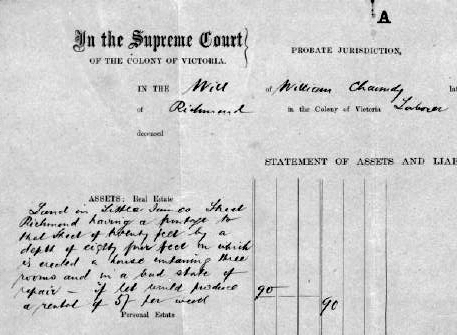 A
In the Supreme Court
OF THE COLONY OF VICTORIA.
PROBATE JURISDICTION,
IN THE Will of William
of Richmond in the Colony of Victoria Laborer
deceased
STATEMENT OF ASSETS AND LIA
ASSETS: Real Estate
Land in Little Street
Richmond having a frontage to
that Street of twenty feet by a
depth of eighty four feet on which
is erected a house containing three
rooms and in a bad state of
repair – if let would produce
a rental of 5/ per week
90
90
Personal Estate